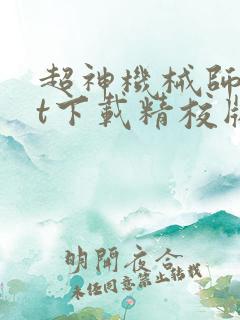 超神機械師
t下載精校版
明開夜合
未經同意禁止轉載